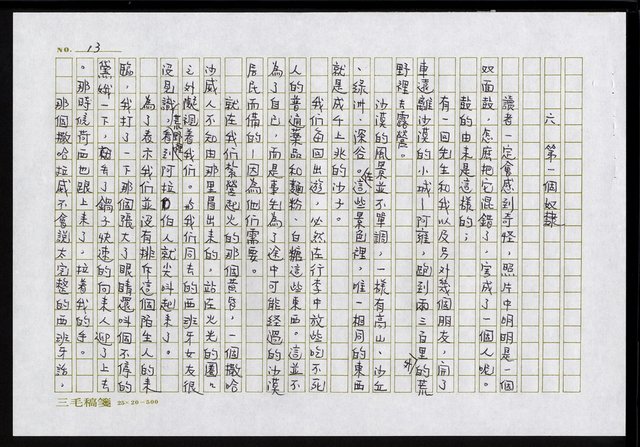 NO. 13
六 第一個奴隸
讀者一定會感到奇怪，照片中明明是一個
双面鼓，怎麼把它混錯了，當成了一個人呢。
鼓的由來是這樣的；
有一回先生和我以及另外幾個朋友，開了
車遠離沙漠的小城－阿雍，跑到兩三百里外的荒
野裡去露營。
沙漠的風景並不單調，一樣有高山、沙丘
、綠洲、深谷。在這些景色裡，唯一相同的東西
就是成千上兆的沙子。
我們每回出遊，必然在行李中放些吃不死
人的普通藥品和麵粉、白糖這些東西。這並不
為了自己，而是事先為了途中可能經過的沙漠
居民而備的－因為他們需要。
就在我們紮營起火的那個黃昏，一個撒哈
沙威人不知由那里冒出來的，站在火光的圈圈
之外凝視著我們。我們同去的西班牙女友很
沒見識，看到阿拉伯人就尖叫起來了。
為了表示我們並沒有排斥這個陌生人的來
臨，我打了一下那個張大了眼睛還叫個不停的
黛娥一下，丟了鍋子快速的向來人迎了上去
。那時候荷西也跟上來了，拉著我的手。
那個撒哈拉威不會說太完整的西班牙話，
三毛稿箋 25×20=500